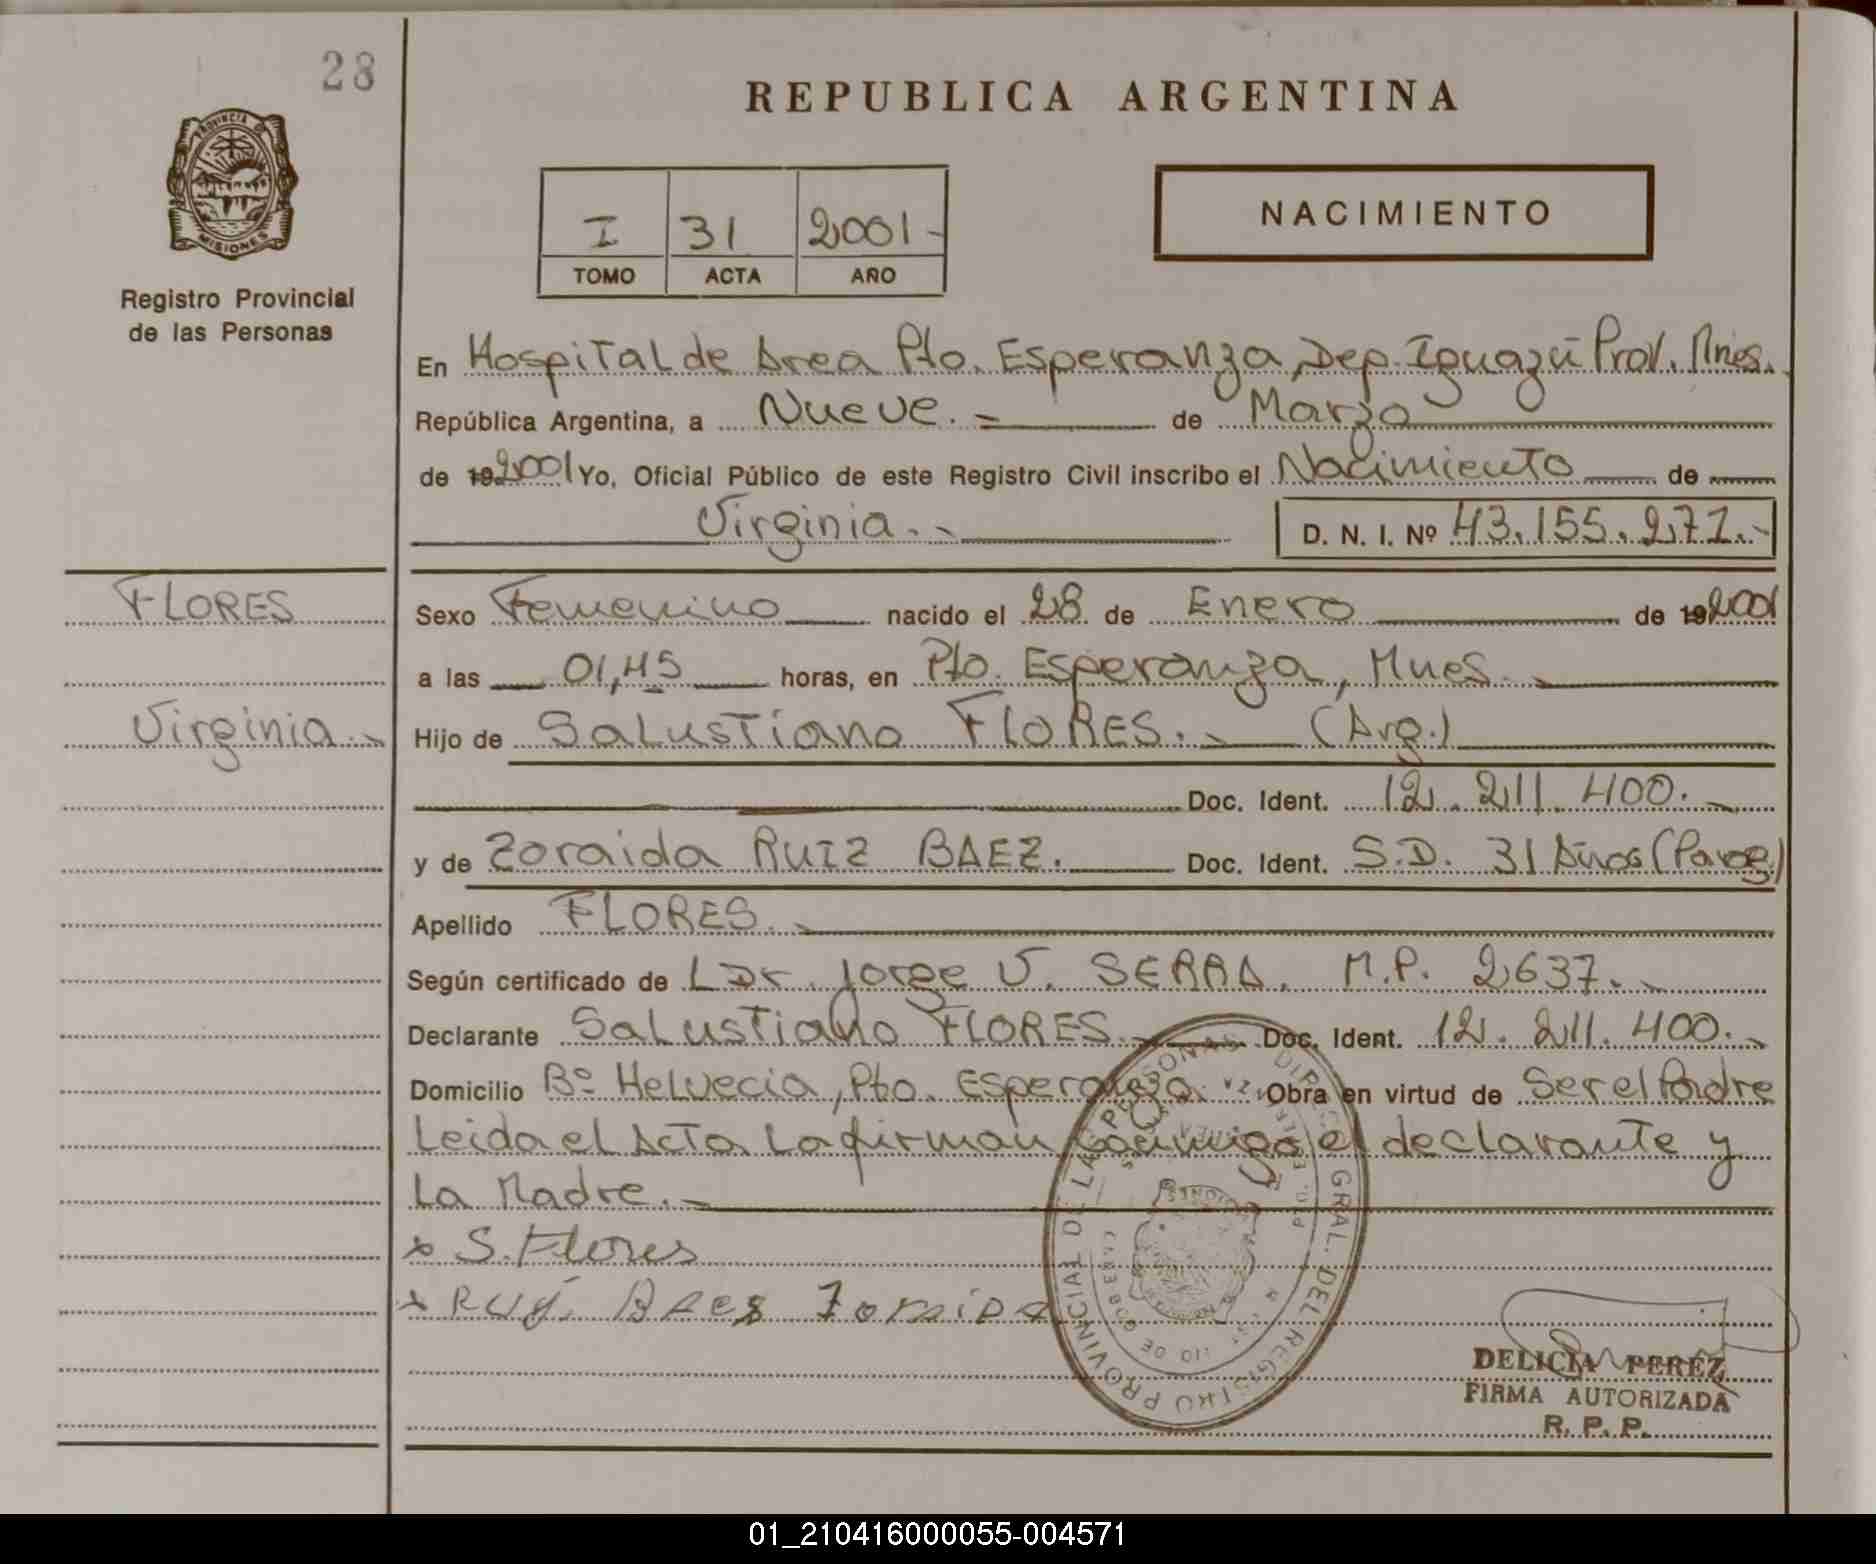 28
REPUBLICA ARGENTINA
PROVINCIA D
MISIONES
Registro Provincial
de las Personas
I 31 2001-
TOMO ACTA AÑO
NACIMIENTO
En Hospital de Area Pto. Esperanza, Dep. Iguazú Prov. Mnes.
República Argentina, a Nueve.= de Marzo
de 192001 Yo, Oficial Público de este Registro Civil inscribo el Nacimiento de
Virginia.- D. N. I. Nº 43.155.271.-
FLORES
Sexo Femenino nacido el 28 de Enero de 192001
a las 01,45 horas, en Pto. Esperanza, Mnes.
Virginia.-
Hijo de Salustiano FLORES.- (Arg.)
Doc. Ident. 12.211.400.-
y de Zoraida RUIZ BAEZ. Doc. Ident. S.D. 31 Años (Parag.)
Apellido FLORES.-
Según certificado de L Dr. Jorge V. SERRA. M.P. 2637.-
Declarante Salustiano FLORES.- Doc. Ident. 12.211.400.-
Domicilio Bº Helvecia, Pto. Esperanza. Obra en virtud de Ser el Padre
Leida el Acta La firman conmigo el declarante y
La Madre.-
x S. Flores
x Ruy. Baez Zoraida
DIRECC. GRAL. DEL REGISTRO PROVINCIAL DE LAS PERSONAS
DELICIA PEREZ
FIRMA AUTORIZADA
R. P. P.
01_210416000055-004571